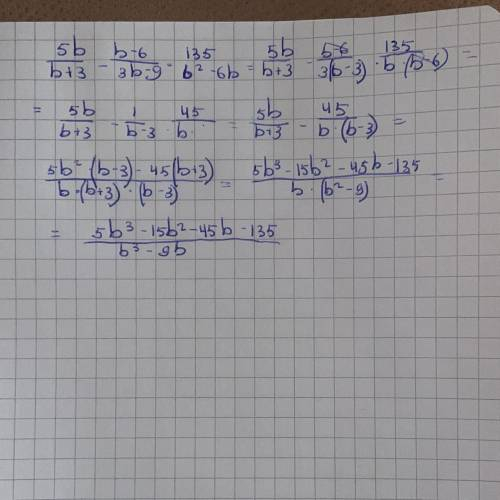 5b/(b+3) - (b-6)/(3b-9) · 135/(b² -6b) = 5b/(b+3) - (b-6)/(3(b-3)) · 135/(b·(b-6)) =
= 5b/(b+3) - 1/(b-3) · 45/b = 5b/(b+3) - 45/(b·(b-3)) =
(5b² (b-3) - 45(b+3))/(b·(b+3)·(b-3)) = (5b³ -15b² -45b -135)/(b·(b²-9)) =
= (5b³ -15b² -45b -135)/(b³ -9b)